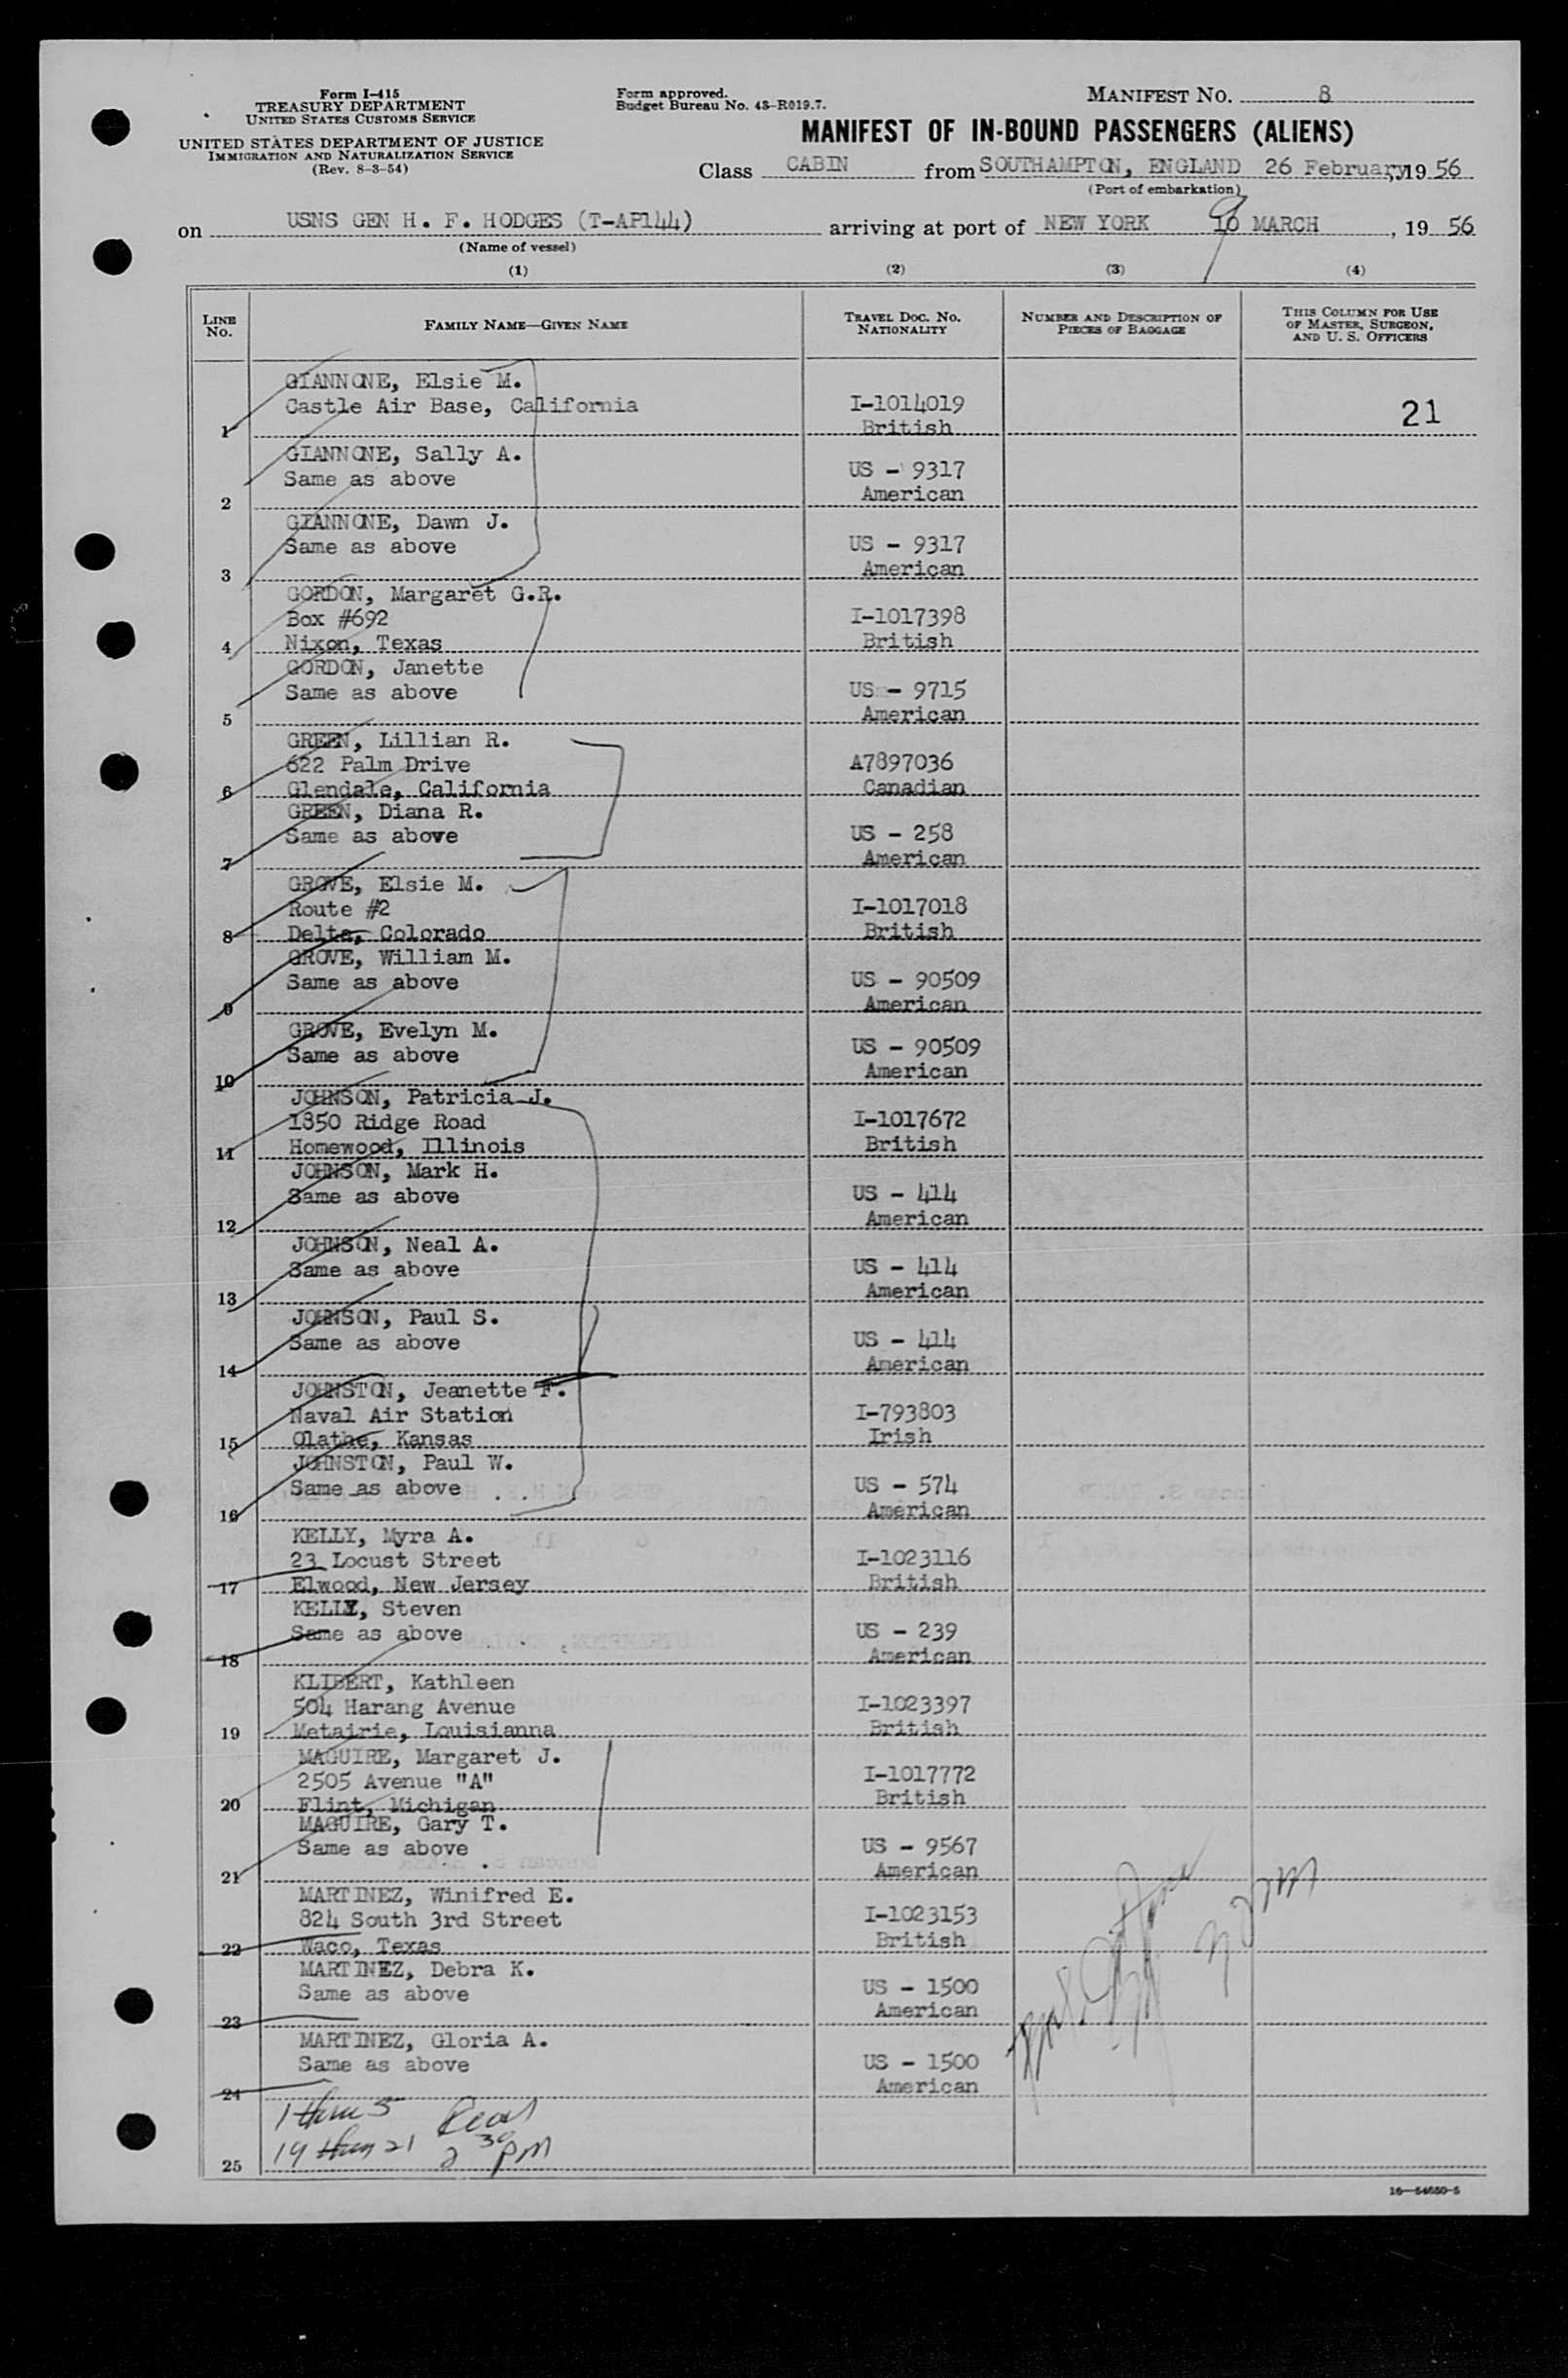 Form I-415
TREASURY DEPARTMENT
UNITED STATES CUSTOMS SERVICE
UNITED STATES DEPARTMENT OF JUSTICE
IMMIGRATION AND NATURALIZATION SERVICE
(Rev. 8-3-54)
Form approved.
Budget Bureau No. 43-R019.7.
MANIFEST NO. 8
MANIFEST OF IN-BOUND PASSENGERS (ALIENS)
Class CABIN from SOUTHAMPTON, ENGLAND 26 February, 1956
(Port of embarkation)
on USNS GEN H. F. HODGES (T-AP144) arriving at port of NEW YORK 9 10 MARCH, 1956
(Name of vessel)
(1) (2) (3) (4)
LINE NO. FAMILY NAME—GIVEN NAME TRAVEL DOC. NO. NATIONALITY NUMBER AND DESCRIPTION OF PIECES OF BAGGAGE THIS COLUMN FOR USE OF MASTER, SURGEON, AND U. S. OFFICERS
GIANNONE, Elsie M.
Castle Air Base, California I-1014019 21
1 British
GIANNONE, Sally A.
Same as above US - 9317
2 American
GIANNONE, Dawn J.
Same as above US - 9317
3 American
GORDON, Margaret G.R.
Box #692 I-1017398
4 Nixon, Texas British
GORDON, Janette
Same as above US - 9715
5 American
GREEN, Lillian R.
622 Palm Drive A7897036
6 Glendale, California Canadian
GREEN, Diana R.
Same as above US - 258
7 American
GROVE, Elsie M.
Route #2 I-1017018
8 Delta, Colorado British
GROVE, William M.
Same as above US - 90509
9 American
GROVE, Evelyn M.
Same as above US - 90509
10 American
JOHNSON, Patricia J.
1850 Ridge Road I-1017672
11 Homewood, Illinois British
JOHNSON, Mark H.
Same as above US - 414
12 American
JOHNSON, Neal A.
Same as above US - 414
13 American
JOHNSON, Paul S.
Same as above US - 414
14 American
JOHNSTON, Jeanette F.
Naval Air Station I-793803
15 Olathe, Kansas Irish
JOHNSTON, Paul W.
Same as above US - 574
16 American
KELLY, Myra A.
23 Locust Street I-1023116
17 Elwood, New Jersey British
KELLY, Steven
Same as above US - 239
18 American
KLIBERT, Kathleen
504 Harang Avenue I-1023397
19 Metairie, Louisianna British
MAGUIRE, Margaret J.
2505 Avenue "A" I-1017772
20 Flint, Michigan British
MAGUIRE, Gary T.
Same as above US - 9567
21 American
MARTINEZ, Winifred E.
824 South 3rd Street I-1023153
22 Waco, Texas British
MARTINEZ, Debra K.
Same as above US - 1500
23 American
MARTINEZ, Gloria A.
Same as above US - 1500
24 American
1 thru 5
19 thru 21 2 30 PM
25
16—54650-5